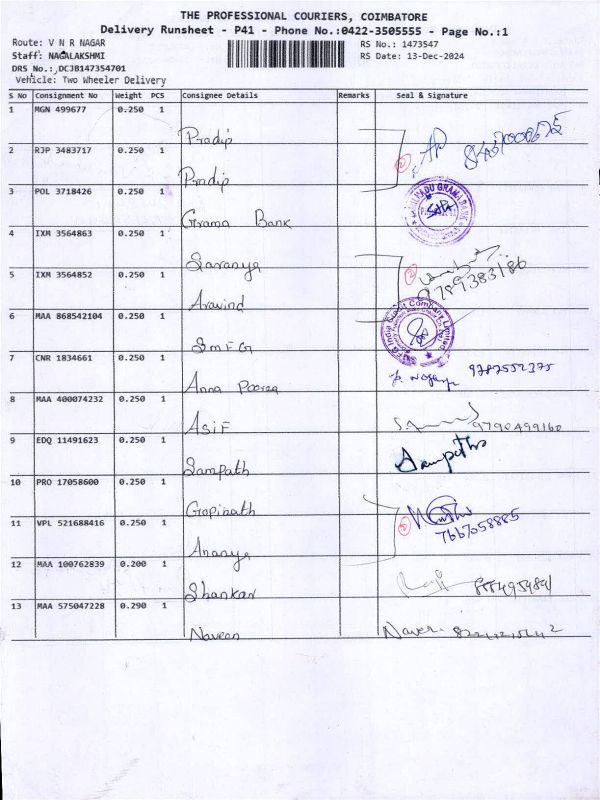 THE PROFESSIONAL COURIERS, COIMBATORE
Delivery Runsheet - P41 - Phone No.:0422-3505555 - Page No.:1
Route: V N R NAGAR RS No.: 1473547
Staff: NAGALAKSHMI RS Date: 13-Dec-2024
DRS No.:,DCJB147354701
Vehicle: Two Wheeler Delivery
S No Consignment No Weight PCS Consignee Details Remarks Seal & Signature
1 MGN 499677 0.250 1 Pradip
2 RJP 3483717 0.250 1 Pradip
3 POL 3718426 0.250 1 Grama Bank
4 IXM 3564863 0.250 1 Saranya
5 IXM 3564852 0.250 1 Aravind 9789383186
6 MAA 868542104 0.250 1 SMFG
7 CNR 1834661 0.250 1 Anna Poorna 9787552375
8 MAA 400074232 0.250 1 ASIF 9790499160
9 EDQ 11491623 0.250 1 Sampath Sampath
10 PRO 17058600 0.250 1 Gopinath
11 VPL 521688416 0.250 1 Ananya 7667058885
12 MAA 100762839 0.200 1 Shankar
13 MAA 575047228 0.290 1 Naveen Naven.